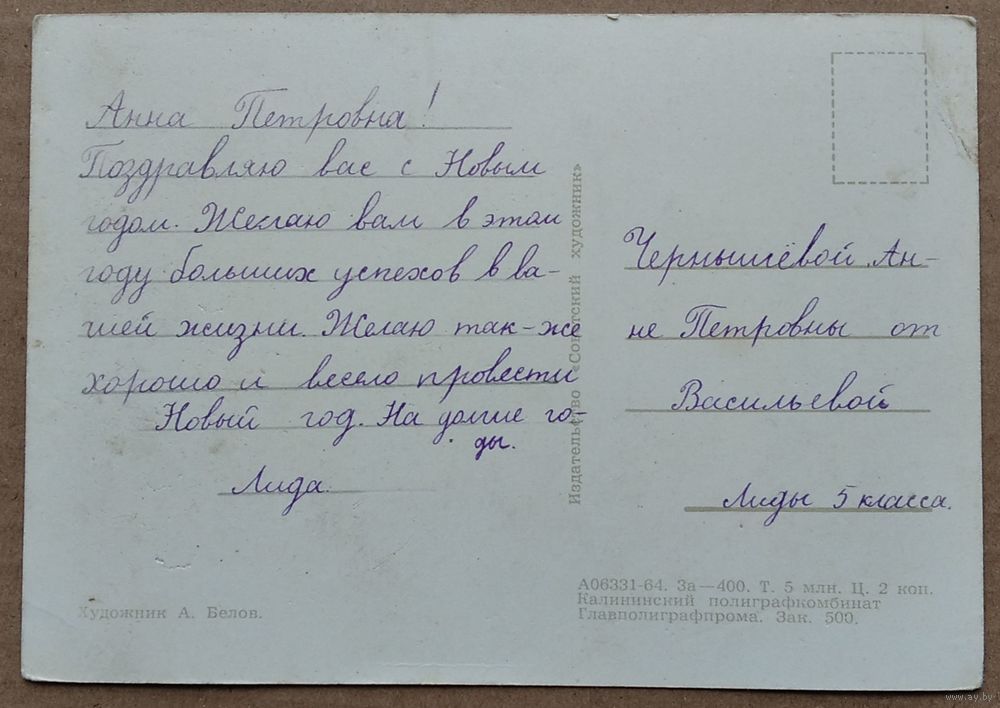 Анна Петровна!
Поздравляю вас с Новым
годом. Желаю вам в этом
году больших успехов в ва-
шей жизни. Желаю так-же
хорошо и весело провести
Новый год. На долгие го-
ды.
Лида.
Художник А. Белов.
Издательство «Советский художник»
Чернышёвой Ан-
не Петровны от
Васильевой
Лиды 5 класса.
А06331-64. За—400. Т. 5 млн. Ц. 2 коп.
Калининский полиграфкомбинат
Главполиграфпрома. Зак. 500.
www.ay.by